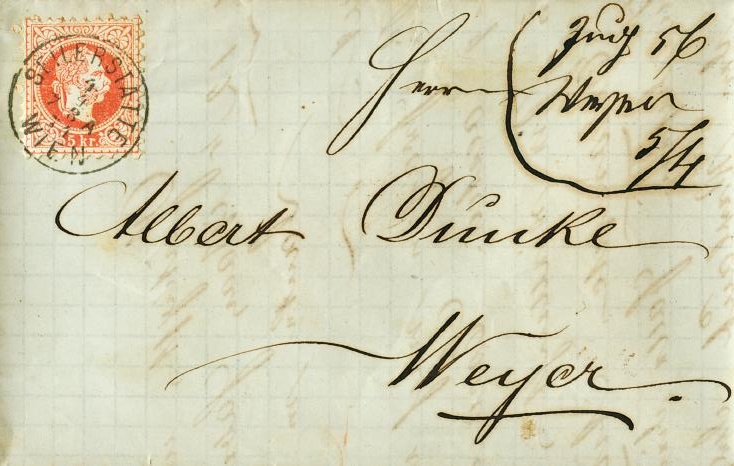 SEILERSTÄTTE
WIEN
5 kr.
Herrn
Zug 56
Weyer
5/4
Albert Dunke
Weyer.